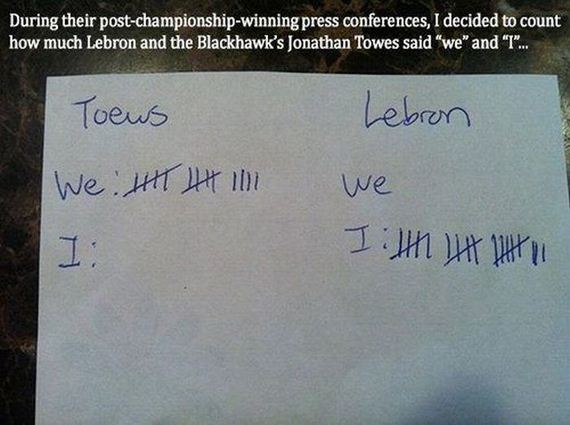 During their post-championship-winning press conferences, I decided to count
how much Lebron and the Blackhawk's Jonathan Towes said "we" and "I"...
Toews Lebron
We: 卌 卌 |||| We
I: I: 卌 卌 卌 ||